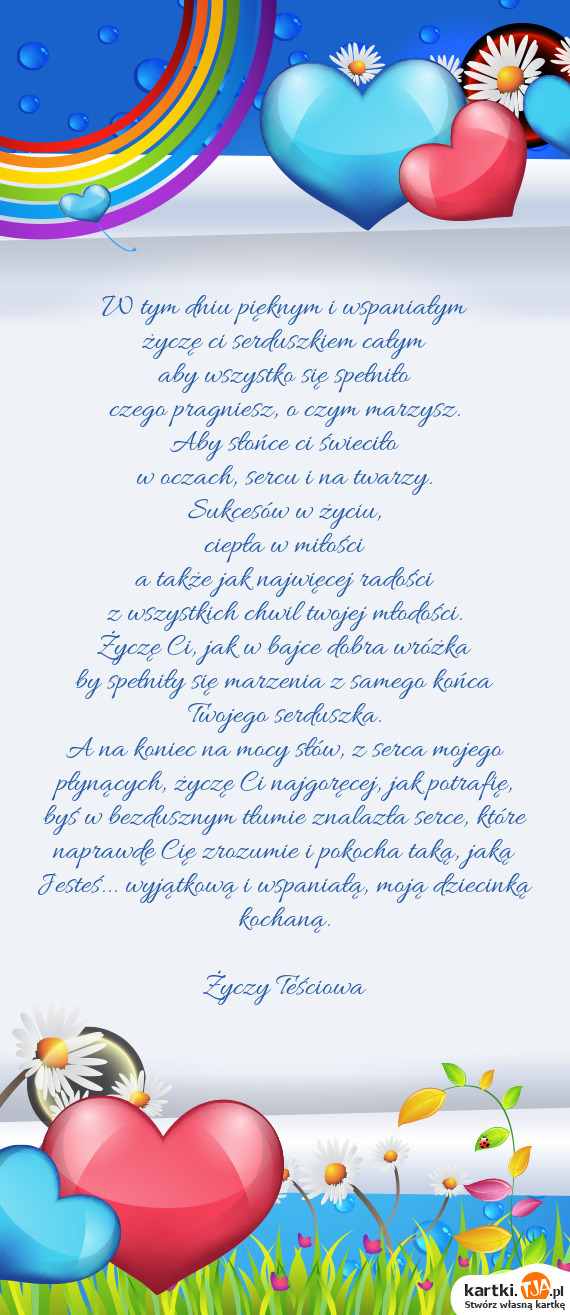 W tym dniu pięknym i wspaniałym
życzę ci serduszkiem całym
aby wszystko się spełniło
czego pragniesz, o czym marzysz.
Aby słońce ci świeciło
w oczach, sercu i na twarzy.
Sukcesów w życiu,
ciepła w miłości
a także jak najwięcej radości
z wszystkich chwil twojej młodości.
Życzę Ci, jak w bajce dobra wróżka
by spełniły się marzenia z samego końca
Twojego serduszka.
A na koniec na mocy słów, z serca mojego
płynących, życzę Ci najgoręcej, jak potrafię,
byś w bezdusznym tłumie znalazła serce, które
naprawdę Cię zrozumie i pokocha taką, jaką
Jesteś... wyjątkową i wspaniałą, moją dziecinką
kochaną.
Życzy Teściowa
kartki.TJA.pl
Stwórz własną kartkę